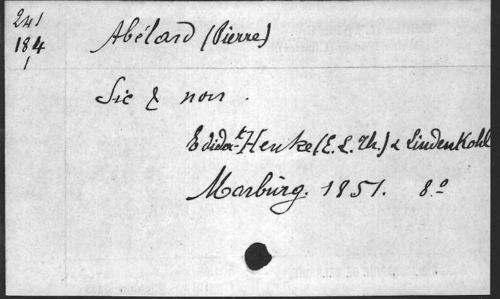 241
184
1
Abélard (Pierre)
Sic & non.
Edider.t Henke (E. L. Th.) & Lindenkohl
Marburg. 1851. 8.o